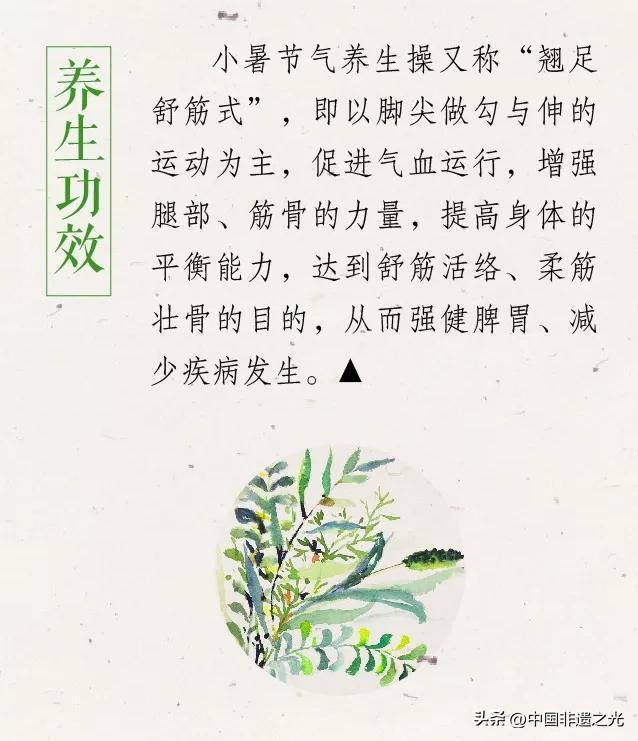 养生功效
小暑节气养生操又称“翘足
舒筋式”，即以脚尖做勾与伸的
运动为主，促进气血运行，增强
腿部、筋骨的力量，提高身体的
平衡能力，达到舒筋活络、柔筋
壮骨的目的，从而强健脾胃、减
少疾病发生。▲
头条 @中国非遗之光